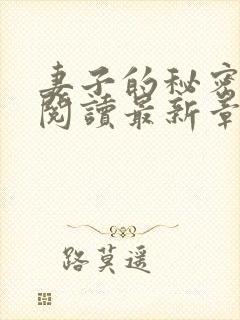 妻子的秘密
閱讀最新章
路莫遥